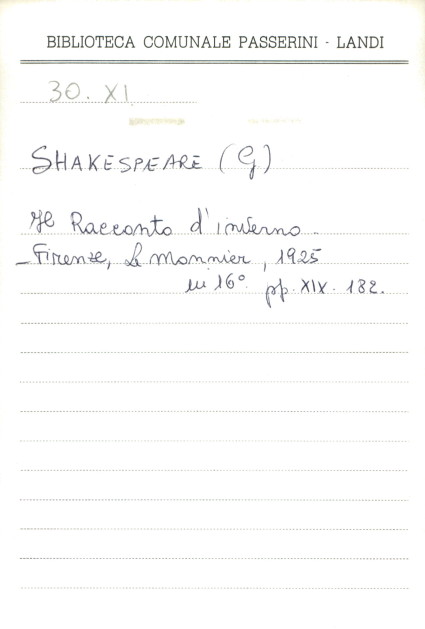 BIBLIOTECA COMUNALE PASSERINI - LANDI
30. XI
SHAKESPEARE (G)
Il Racconto d'inverno.
- Firenze, Le Monnier, 1925
in 16° pp. XIX. 182.